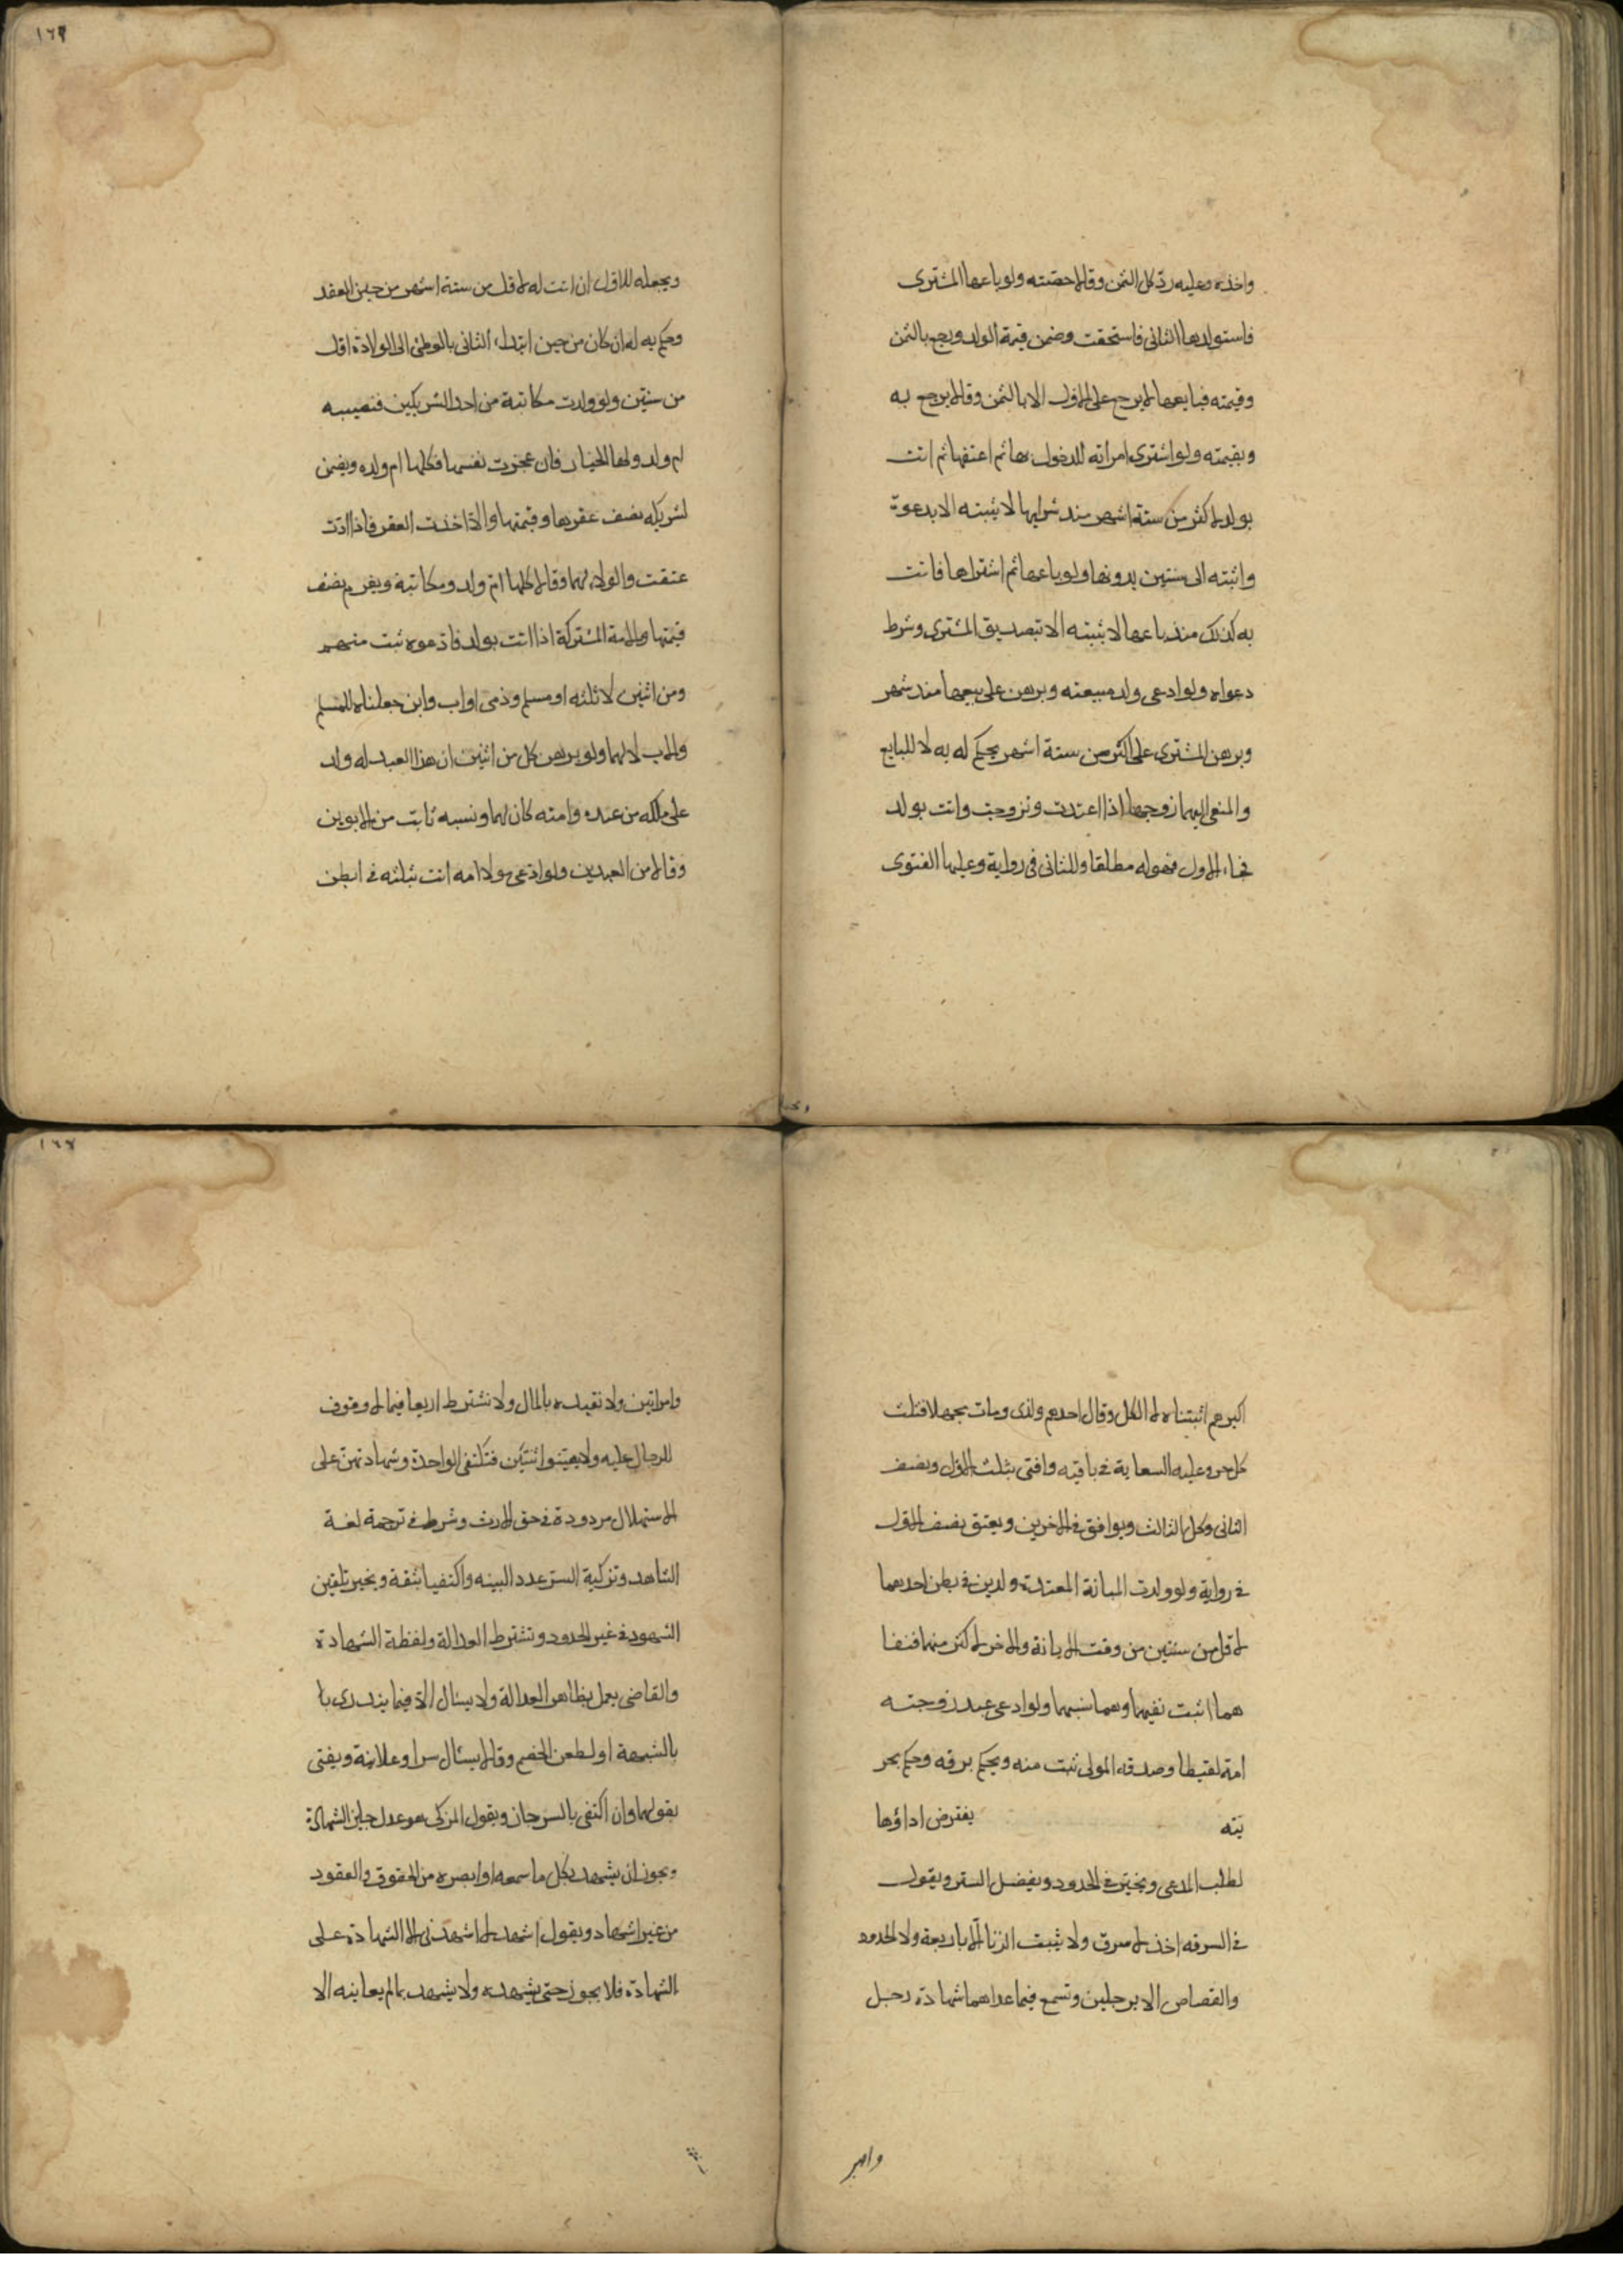 واخذه وعليه ردّ كل الثمن وقالا حصته ولو باعها المشترى
فاستولدها الثانى فاستحقت وضمن قيمة الولد ورجع بالثمن
وقيمته فبايعها لا يرجع على الاول الا بالثمن وقالا يرجع به
وبقيمته ولو اشترى امراته المدخول بها ثم اعتقها ثم اتت
بولد لاكثر من ستة اشهر منذ شرايها لا يثبته الا بدعوة
واثبته الى سنتين بدونها ولو باعها ثم اشتراها فاتت
به كذلك منذ باعها لا يثبته الا تبصديق المشترى وشرط
دعواه ولو ادعى ولد مبيعته وبرهن على بيعها منذ شهر
وبرهن المشترى على اكثر من ستة اشهر يحكم له به لا للبايع
والمنعى اليها زوجها اذا اعتدت وتزوجت واتت بولد
فجاء الاول فهو له مطلقا وللثانى فى رواية وعليها الفتوى
ويجعله للاول ان اتت له لاقل من ستة اشهر من حين العقد
وحكم به له ان كان من حين ابتداء الثانى بالوطئ الى الولادة اقل
من سنتين ولو ولدت مكاتبة من احد الشريكين فنصيبه
ام ولد ولها الخيار فان عجزت نفسها فكلها ام ولده ويضمن
لشريكه نصف عقرها وقيمتها والا اخذت العقر فاذا ادّت
عتقت والولاء لهما وقالا كلها ام ولد ومكاتبة ويغرم نصف
قيمتها والامة المشتركة اذا اتت بولد فادعوه ثبت منهم
ومن اثنين لا ثلثه او مسلم وذمى او اب وابن جعلناه للمسلم
والاب لا لهما ولو برهن كل من اثنين ان هذا العبد له ولد
على ملكه من عنده وامته كان لهما ونسبه ثابت من الابوين
وقالا من العبدين ولو ادعى مولا امه اتت بثلثه فى ابطن
وبجعله
اكبرهم اثبتناه لا الكل وقال احدهم ولدى ومات بجهلا فثلث
كل حر وعليه السعاية فى باقيه وافتى بثلث الاول وبنصف
الثانى وكل الثالث ويوافق فى الاخرين ويعتق نصف الاول
فى رواية ولو ولدت المبانة المعتدة ولدين فى بطن احدهما
لاقل من سنتين من وقت الابانة والاخر لاكثر منهما فنفا
هما اثبت نفيهما وهما نسبهما ولو ادعى عبد زوجته
امة لقيطا وصدقه المولى ثبت منه ويحكم برقه وحكم بحر
يته يفترض اداؤها
لطلب المدعى ويخير فى الحدود ويفضل الستر ويقول
فى السرقه اخذ لا سرق ولا يثبت الزنا الا باربعة ولا الحدود
والقصاص الا برجلين وتسمع فيما عداهما شهادة رجل
وامر
وامراتين ولا نقيده بالمال ولا نشترط اربعا فيما لا وقوف
للرجال عليه ولا يعينوا اثنتين فتكتفى الواحدة وشهادتهن على
الاستهلال مردودة فى حق الارث وشرط فى ترجمة لغة
الشاهد وتزكية الستر عدد البينه واكتفيا بثقة ويخير تلقين
الشهود فى غير الحدود وتشترط العدالة ولفظة الشهادة
والقاضى يعمل بظاهر العدالة ولا يسئال الا فيما يندرى با
بالشبهة او لطعن الخصم وقالا يسئال سرا وعلانية ويفتى
بقولهما وان اكتفى بالسر جاز ويقول المزكى هو عدل جايز الشهادة
ويجوز ان يشهد بكل ما سمعه او ابصره من الحقوق والعقود
من غير اشهاد ويقول اشهد لا اشهدنى الا الشهادة على
الشهادة فلا يجوز حتى يشهده ولا يشهد بما لم يعاينه الا